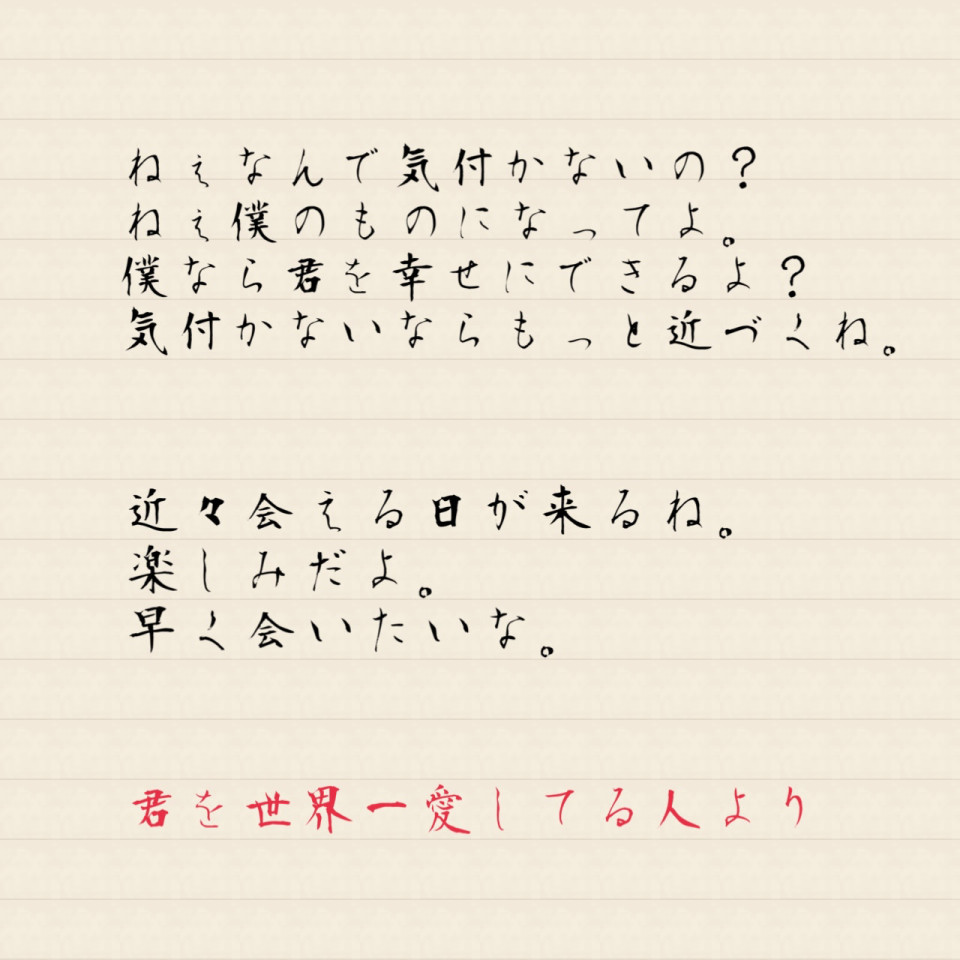 ねぇなんで気付かないの？
ねぇ僕のものになってよ。
僕なら君を幸せにできるよ？
気付かないならもっと近づくね。
近々会える日が来るね。
楽しみだよ。
早く会いたいな。
君を世界一愛してる人より